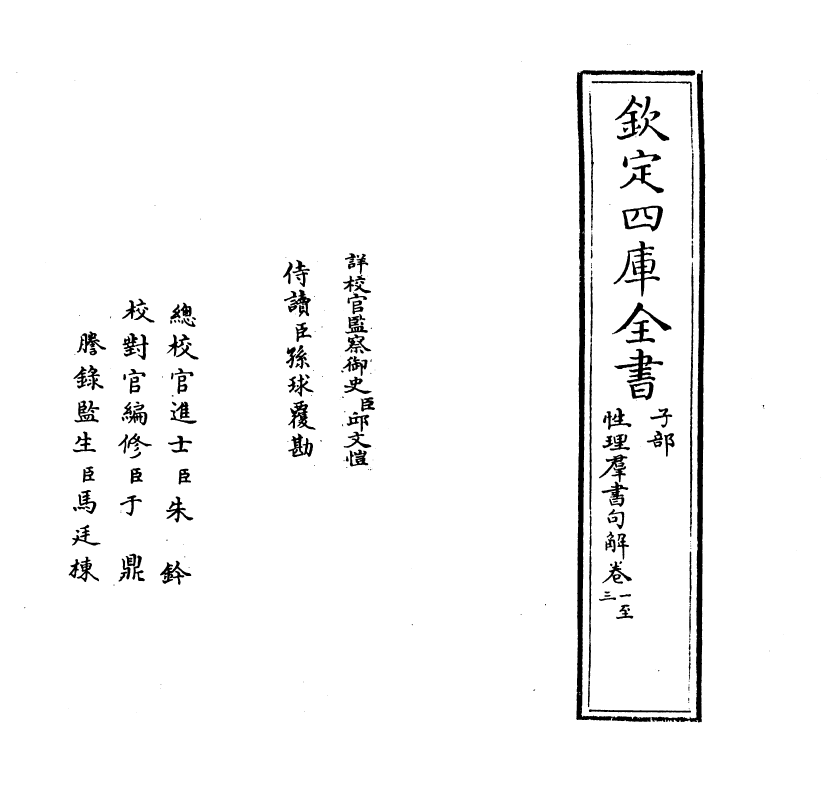 欽定四庫全書
子部
性理羣書句解卷一至三
詳校官監察御史臣邱文愷
侍讀臣孫球覆勘
總校官進士臣朱鈐
校對官編修臣于鼎
謄錄監生臣馬廷棟